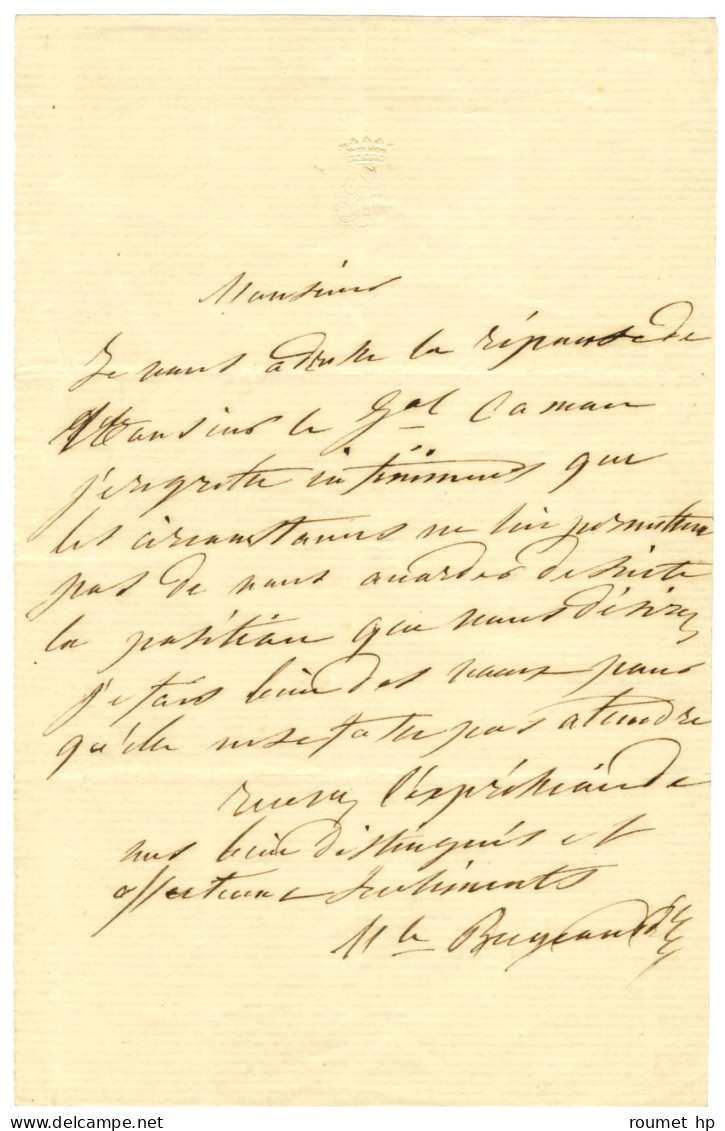 Monsieur
Je vous adresse la réponse de
Monsieur le Gal Camou
j'e regrette infiniment que
les circonstances ne lui permettent
pas de vous accorder de suite
la position que vous désirez
je fais bien des vœux pour
qu'elle ne se fate pas atendre
recevez l'expression de
mes bien distingués et
affectueux sentiments
Mle Bugeaud
© roumet hp